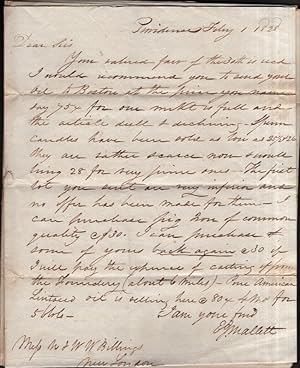 Providence Feby 1 1838
Dear Sir
Your valued favr of the 30th is recd
I would recommend you to send your
oil to Boston at the price you name
say 75¢ for one mkt is full and
the article dull & declining - Sperm
candles have been sold as low as 25¢ & 26
they are rather scarce now & would
bring 28 for very prime ones. The first
lot you sent are very inferior and
no offer has been made for them - I
can purchase pig Iron of common
quality @ $30. I can purchase
some of your back again @ 30 if
I will pay the expence of carting it from
the Foundery (about 6 miles) - One American
Linseed oil is selling here @ 80¢ 4 Mo for
5 bbls -
I am your frnd
E J Mallett
Messr N & W W Billings
New London